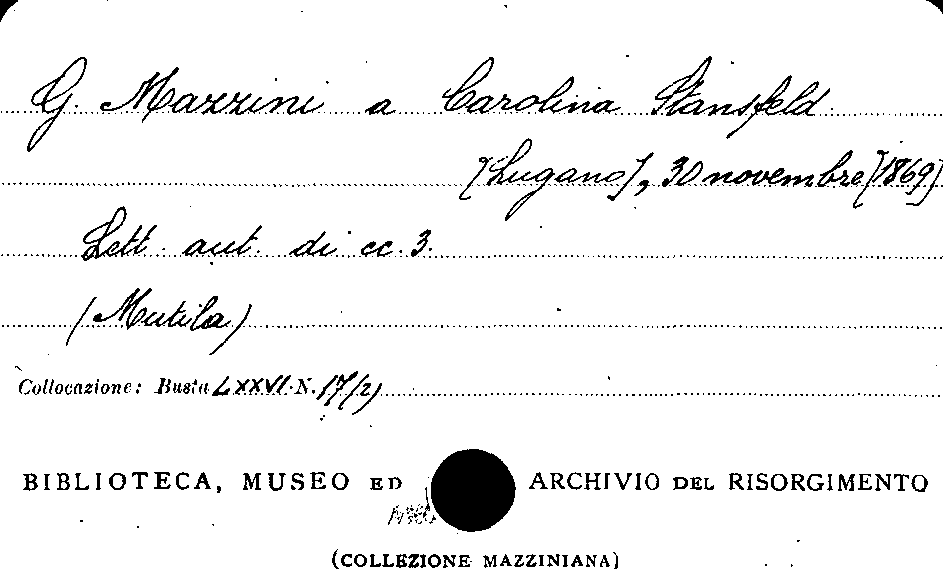 G. Mazzini a Carolina Stansfeld
[Lugano], 30 novembre [1869]
Lett. aut. di cc. 3.
(Mutila)
Collocazione: Busta LXXVI. N. 17(2)
BIBLIOTECA, MUSEO ED ARCHIVIO DEL RISORGIMENTO
(COLLEZIONE MAZZINIANA)